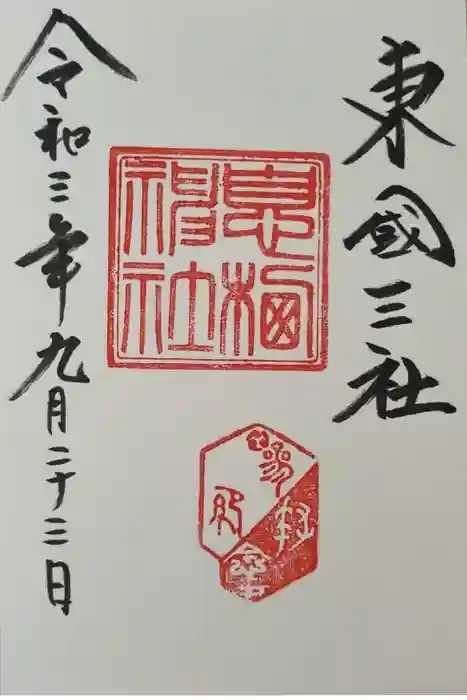 東國三社
息栖神社
令和三年九月二十三日